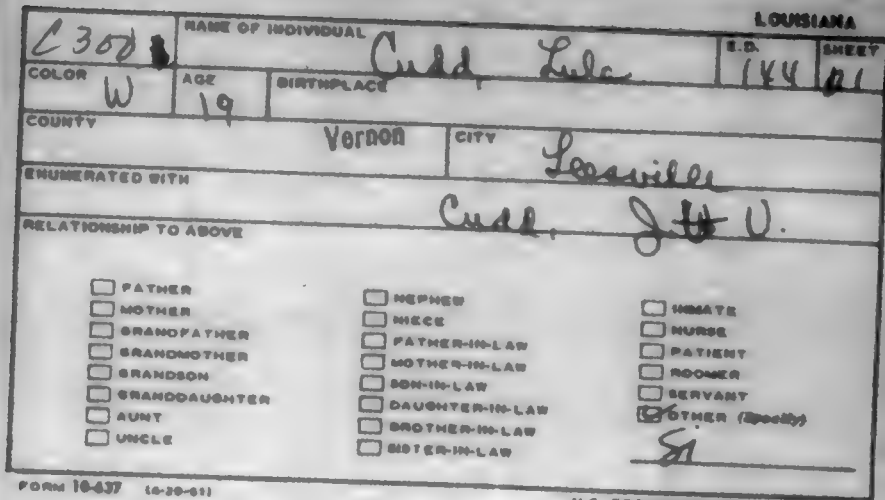 LOUISIANA
C 300
NAME OF INDIVIDUAL Cudd, Lula
E.D. 144
SHEET
COLOR W
AGE 19
BIRTHPLACE
COUNTY Vernon
CITY Leesville
ENUMERATED WITH Cudd, V.
RELATIONSHIP TO ABOVE
FATHER
MOTHER
GRANDFATHER
GRANDMOTHER
GRANDSON
GRANDDAUGHTER
AUNT
UNCLE
NEPHEW
NIECE
FATHER-IN-LAW
MOTHER-IN-LAW
SON-IN-LAW
DAUGHTER-IN-LAW
BROTHER-IN-LAW
SISTER-IN-LAW
INMATE
NURSE
PATIENT
ROOMER
SERVANT
OTHER (Specify)
Si
FORM 10-637 (6-20-61)